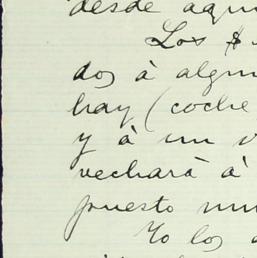 desde aqu
Los $
dos à algu
hay (coche
y à un v
vechará à
puesto mu
Yo los